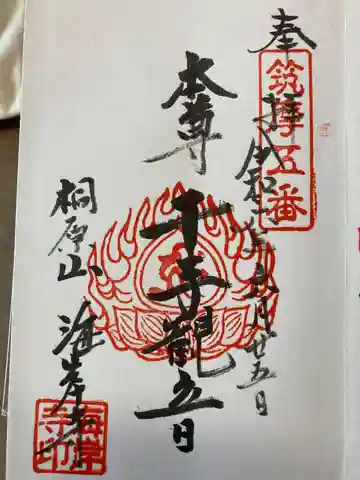 奉拝
筑摩五番
令和二年六月廿五日
本尊
千手観音
桐原山
海岸寺
海岸
寺印